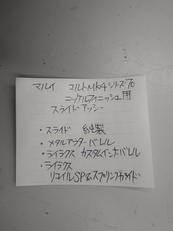 マルイ コルトMk4シリーズ70
ニッケルフィニッシュ用
スライドアッシー
・スライド 純製
・メタルアウターバレル
・ライラクス カスタムインナーバレル
・ライラクス
リコイルSP&スプリングガイド